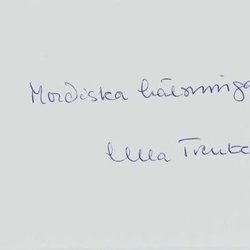 Mordiska hälsninga
Ulla Trente